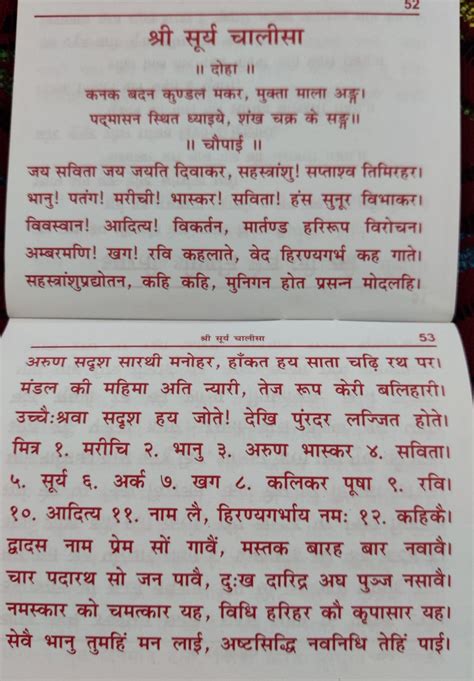 52
श्री सूर्य चालीसा
॥ दोहा ॥
कनक बदन कुण्डल मकर, मुक्ता माला अङ्ग।
पद्मासन स्थित ध्याइये, शंख चक्र के सङ्ग॥
॥ चौपाई ॥
जय सविता जय जयति दिवाकर, सहस्त्रांशु! सप्ताश्व तिमिरहर।
भानु! पतंग! मरीची! भास्कर! सविता! हंस सुनूर विभाकर।
विवस्वान! आदित्य! विकर्तन, मार्तण्ड हरिरूप विरोचन।
अम्बरमणि! खग! रवि कहलाते, वेद हिरण्यगर्भ कह गाते।
सहस्त्रांशुप्रद्योतन, कहि कहि, मुनिगन होत प्रसन्न मोदलहि।
श्री सूर्य चालीसा 53
अरुण सदृश सारथी मनोहर, हाँकत हय साता चढ़ि रथ पर।
मंडल की महिमा अति न्यारी, तेज रूप केरी बलिहारी।
उच्चैःश्रवा सदृश हय जोते! देखि पुंरदर लज्जित होते।
मित्र १. मरीचि २. भानु ३. अरुण भास्कर ४. सविता।
५. सूर्य ६. अर्क ७. खग ८. कलिकर पूषा ९. रवि।
१०. आदित्य ११. नाम लै, हिरण्यगर्भाय नमः १२. कहिकै।
द्वादस नाम प्रेम सों गावैं, मस्तक बारह बार नवावै।
चार पदारथ सो जन पावै, दुःख दारिद्र अघ पुञ्ज नसावै।
नमस्कार को चमत्कार यह, विधि हरिहर कौ कृपासार यह।
सेवै भानु तुमहिं मन लाई, अष्टसिद्धि नवनिधि तेहिं पाई।